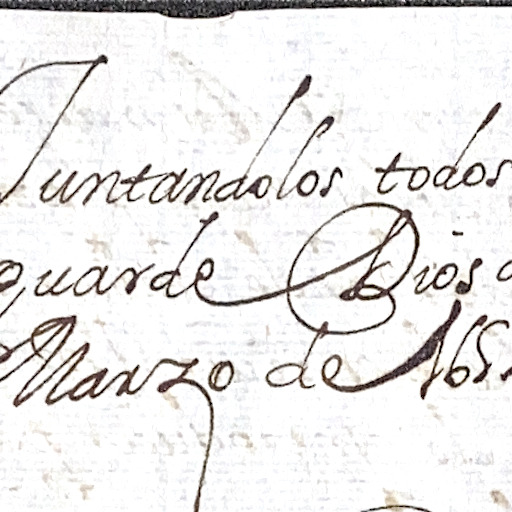 Juntandolos todos
guarde Dios
Marzo de 165